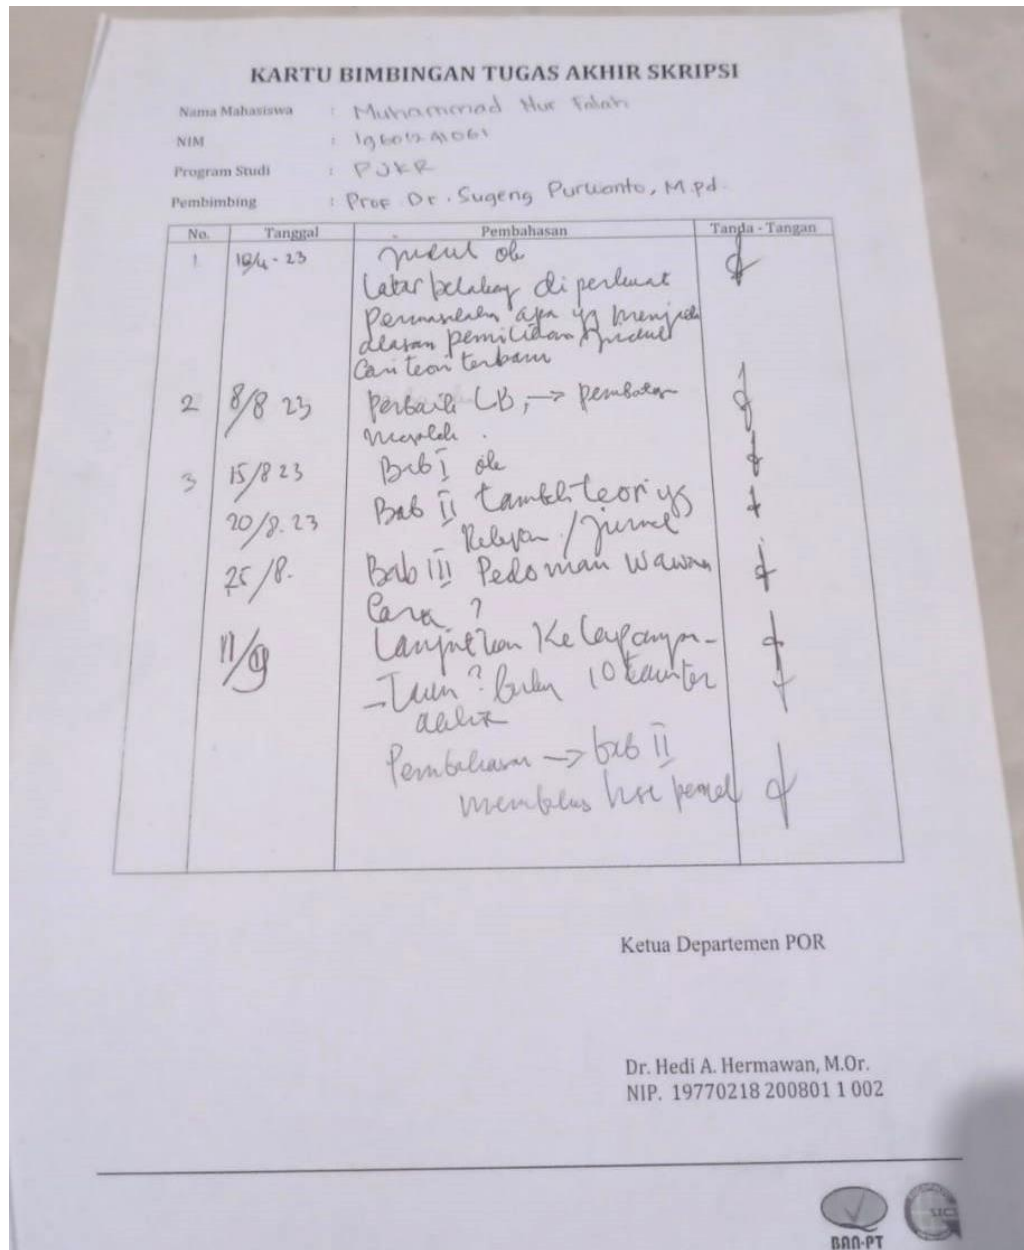 KARTU BIMBINGAN TUGAS AKHIR SKRIPSI
Nama Mahasiswa : Muhammad Nur Falah
NIM : 19601241061
Program Studi : PJKR
Pembimbing : Prof. Dr. Sugeng Purwanto, M.pd.
No. Tanggal Pembahasan Tanda - Tangan
1 18/4 - 23 judul ok
Latar belakang di perkuat
Permasalahan apa yg menjadi
alasan pemilihan judul
Cari teori terbaru
2 8/8 23 Perbaiki LB, -> pembatasan
masalah.
3 15/8 23 Bab I ok
20/8.23 Bab II tambah teori yg
Relevan / jurnal
25/8. Bab III Pedoman Wawan
Cara ?
11/9 Lanjutkan Ke lapangan
10
Pembahasan -> bab II
membahas
Ketua Departemen POR
Dr. Hedi A. Hermawan, M.Or.
NIP. 19770218 200801 1 002
BAN-PT